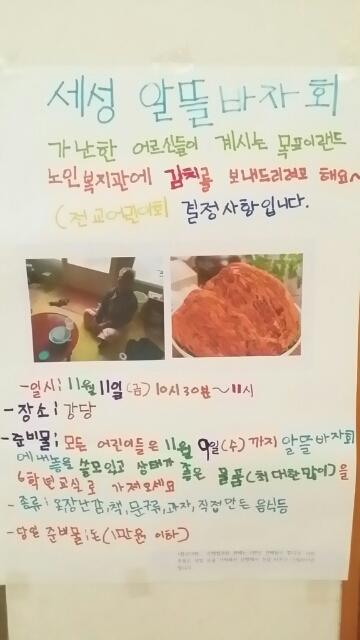 세성 알뜰바자회
가난한 어르신들이 계시는 목포이랜드
노인복지관에 김치를 보내드리려고 해요~
(전교어린이회 결정사항입니다.
- 일시; 11월 11일(금) 10시 30분~11시
- 장소; 강당
- 준비물; 모든 어린이들은 11월 9일(수)까지 알뜰바자회
에 내놓을 쓸모있고 상태가 좋은 물품(최대한 많이)을
6학년 교실로 가져오세요
- 종류; 장난감, 책, 문구류, 과자, 직접 만든 음식등
- 당일 준비물; 돈(1만원 이하)